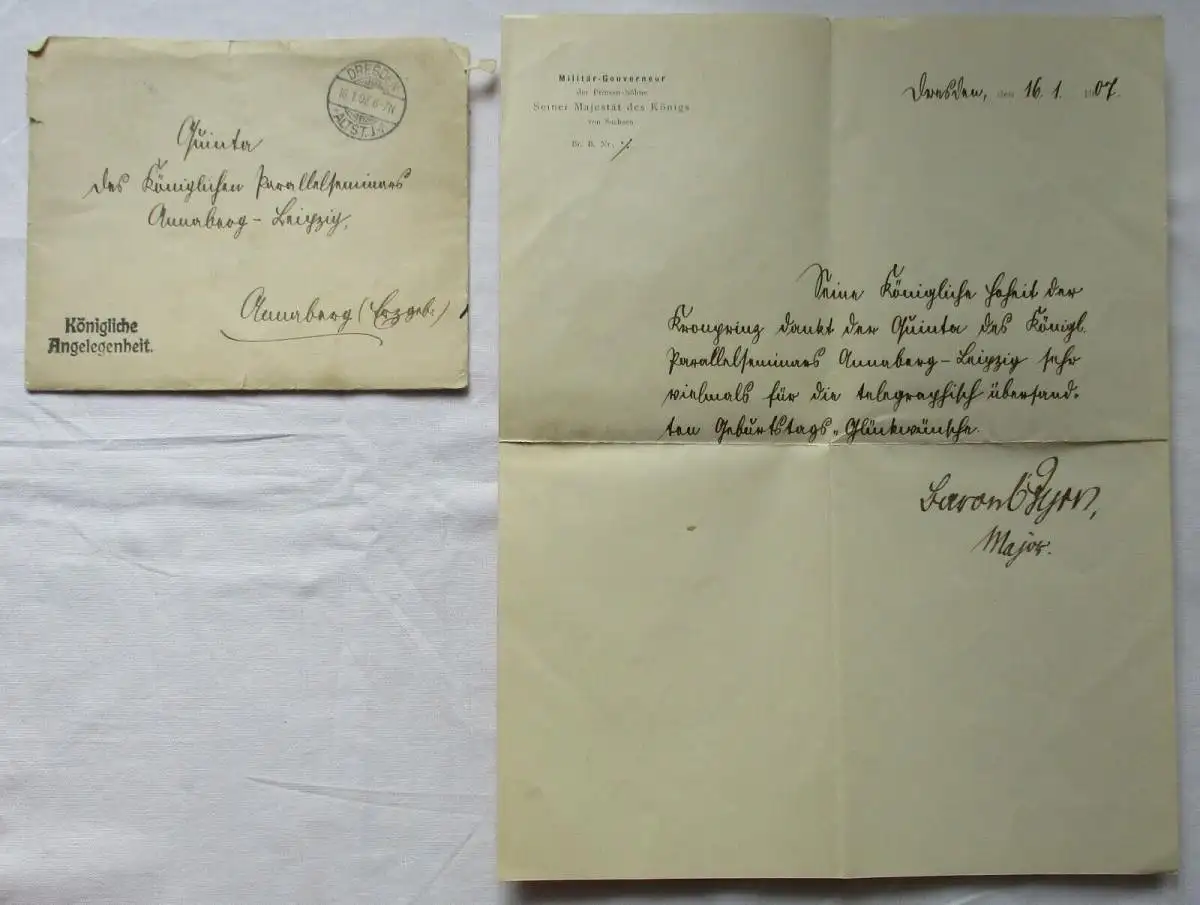 DRESDEN
ALTST. 1
Quinta
des Königlichen Parallelseminars
Annaberg-Leipzig,
Annaberg (Erzgeb:)
Königliche
Angelegenheit.
Militär-Gouverneur
der Prinzen-Söhne
Seiner Majestät des Königs
von Sachsen
Br. B. Nr.
Dresden, den 16. 1. 1907.
Seine Königliche Hoheit der
Kronprinz dankt der Quinta des Königl.
Parallelseminars Annaberg-Leipzig sehr
vielmals für die telegraphisch übersand-
ten Geburtstags-Glückwünsche.
Baron O'Byrn,
Major.